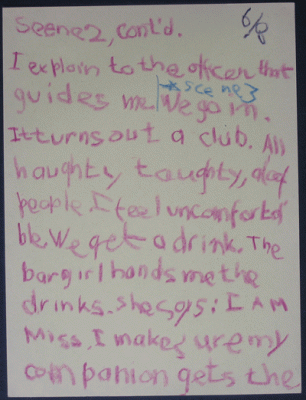 6/8
Scene 2, cont'd.
I explain to the officer that
guides me. → scene 3
We go in.
It turns out a club. All
haughty taughty, aloof
people. I feel uncomforta
ble. We get a drink. The
bargirl hands me the
drinks. She says: I AM
Miss. I make sure my
companion gets the